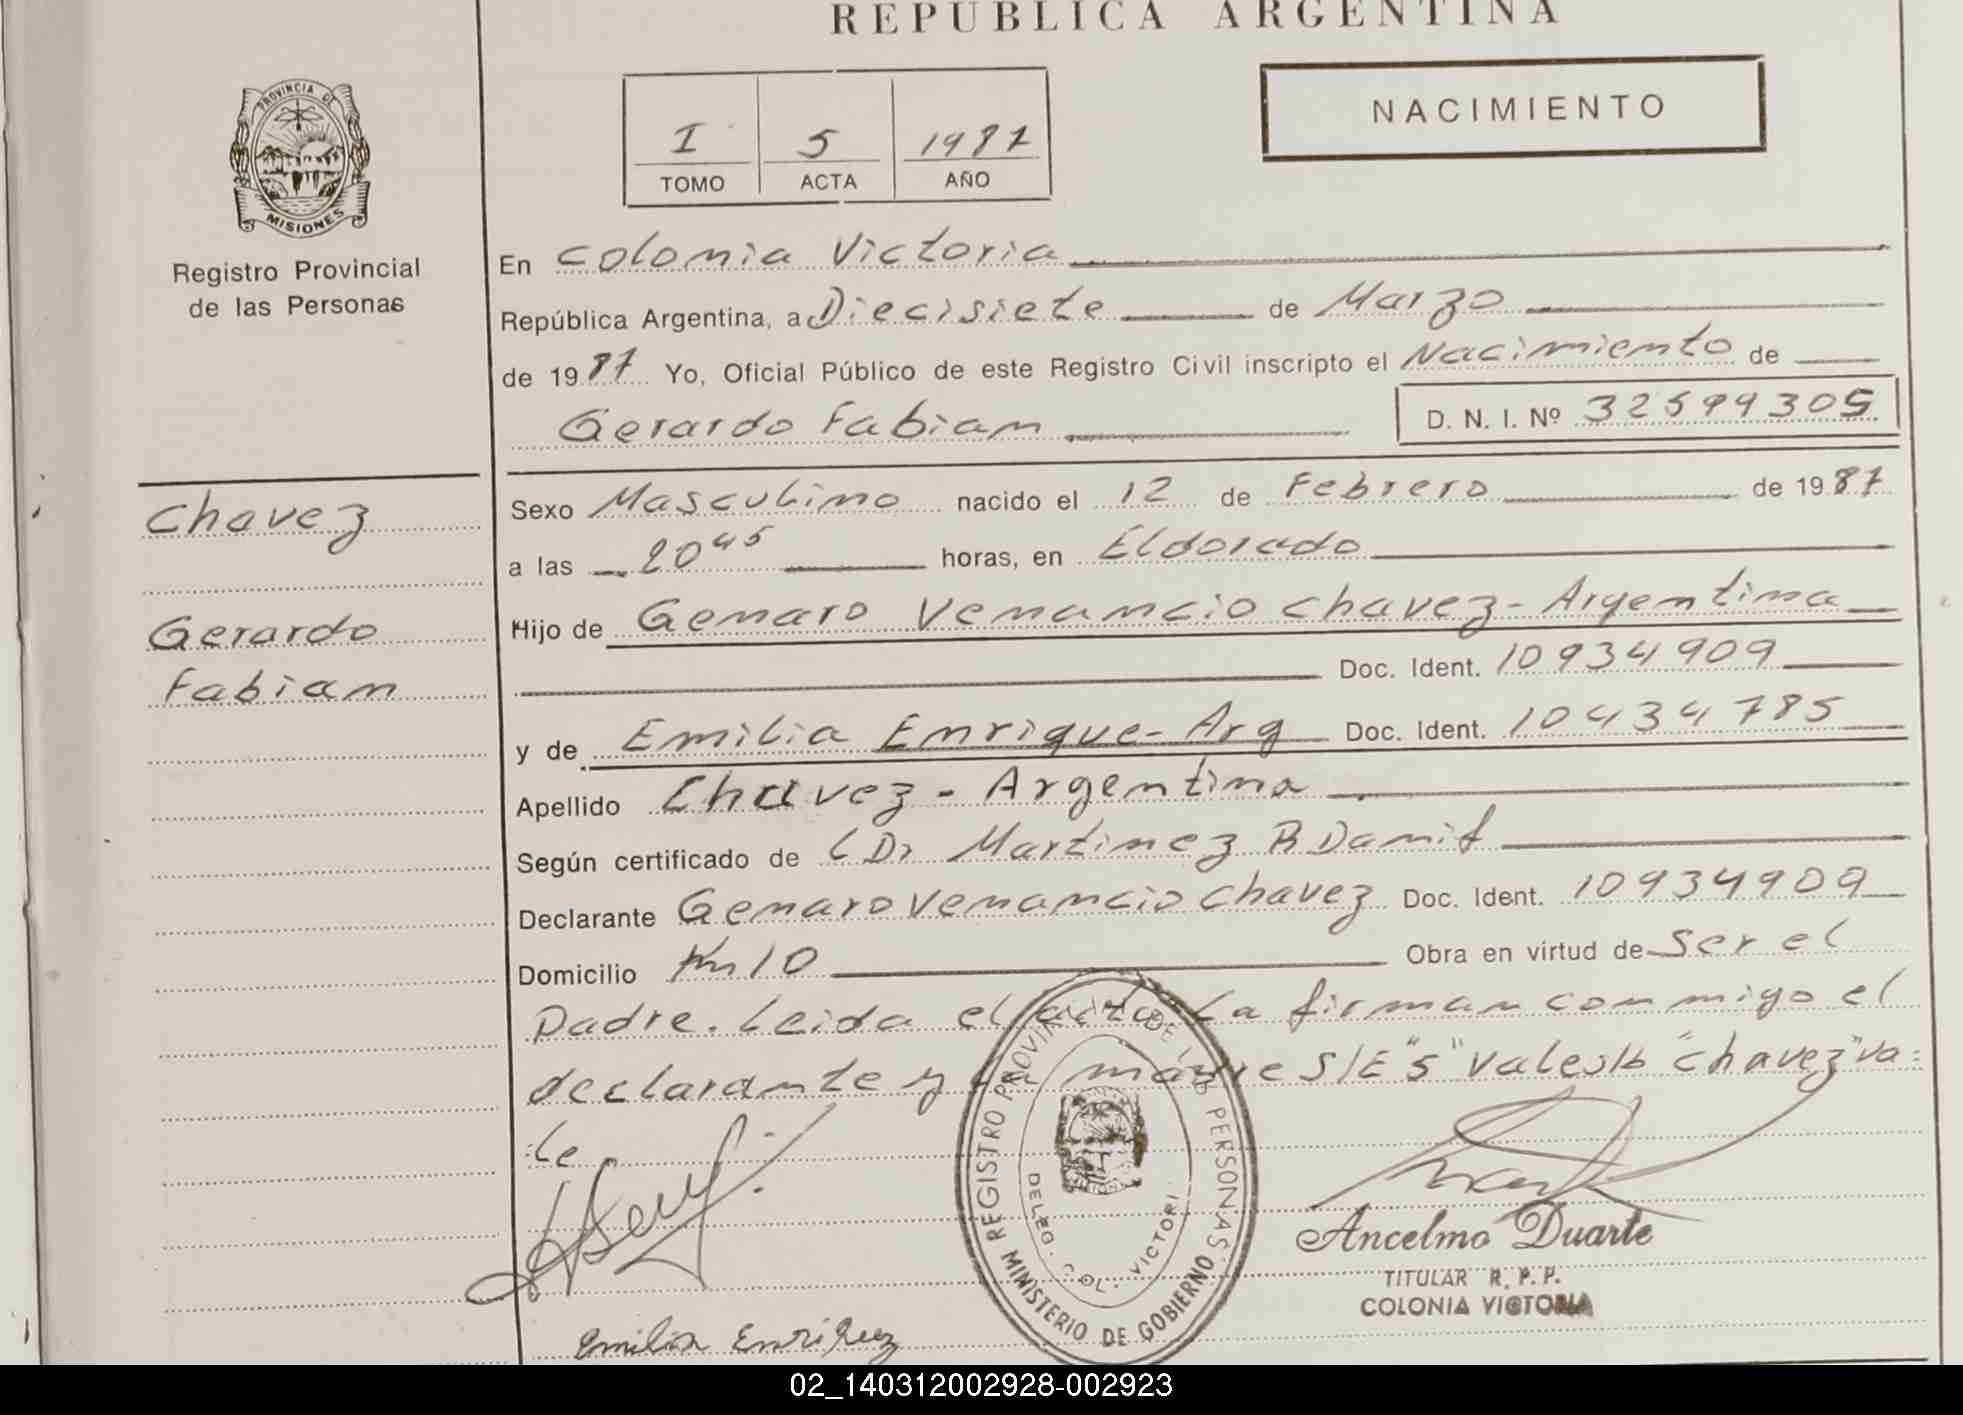 REPUBLICA ARGENTINA
PROVINCIA DE
MISIONES
Registro Provincial
de las Personas
I 5 1987
TOMO ACTA AÑO
NACIMIENTO
En Colonia Victoria
República Argentina, a Diecisiete de Marzo
de 1987 Yo, Oficial Público de este Registro Civil inscripto el Nacimiento de
Gerardo Fabian D. N. I. Nº 32599305
Chavez
Gerardo
Fabian
Sexo Masculino nacido el 12 de Febrero de 1987
a las 20 45 horas, en Eldorado
Hijo de Genaro Venancio Chavez - Argentina
Doc. Ident. 10934909
y de Emilia Enrique - Arg Doc. Ident. 10434785
Apellido Chavez - Argentina
Según certificado de Dr Martinez R
Declarante Genaro Venancio Chavez Doc. Ident. 10934909
Domicilio Km 10 Obra en virtud de Ser el
Padre. Leida el acta La firman conmigo el
declarante y la madre S/E "5" Vale S/b "Chavez" Va=
le
REGISTRO PROVINCIAL DE LAS PERSONAS
MINISTERIO DE GOBIERNO
DELEG. COL. VICTORI
MISIONES
Ancelmo Duarte
TITULAR R. P. P.
COLONIA VICTORIA
Emilia Enriquez
02_140312002928-002923